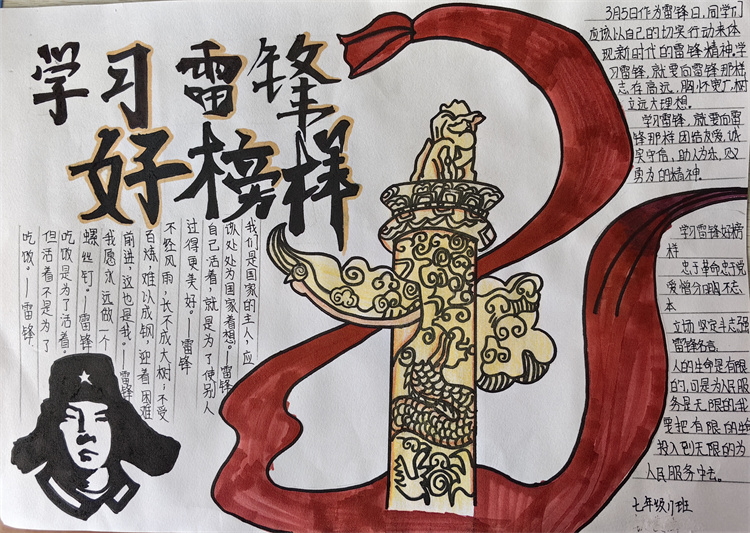 学习雷锋
好榜样
3月5日作为雷锋日,同学们
应该以自己的切实行动来体
现新时代的雷锋精神.学
习雷锋,就要向雷锋那样
志存高远,胸怀宽广,树
立远大理想。
学习雷锋,就要向雷
锋那样团结友爱,诚
实守信,助人为乐,见义
勇为的精神。
学习雷锋好榜
样
忠于革命忠于党
爱憎分明不忘
本
立场坚定斗志强
雷锋名言:
人的生命是有限
的,可是为人民服
务是无限的,我
要把有限的生命
投入到无限的为
人民服务中去。
七年级11班
我们是国家的主人,应
该处处为国家着想。——雷锋
自己活着,就是为了使别人
过得更美好。——雷锋
不经风雨,长不成大树;不受
百炼,难以成钢,迎着困难
前进,这也是我。——雷锋
我愿永远做一个
螺丝钉。——雷锋
吃饭是为了活着。
但活着不是为了
吃饭。——雷锋